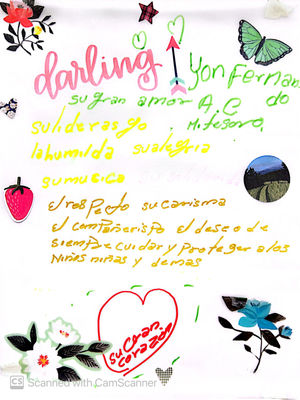 darling
yon fernan
do
su gran amor A.C
su liderasgo, mi tesoro,
la humilda su alegria
su musica
el respecto su carisma
el compañerispo el deseo de
siempre cuidar y proteger a los
niños niñas y demas
su Gran
corazón
CS Scanned with CamScanner